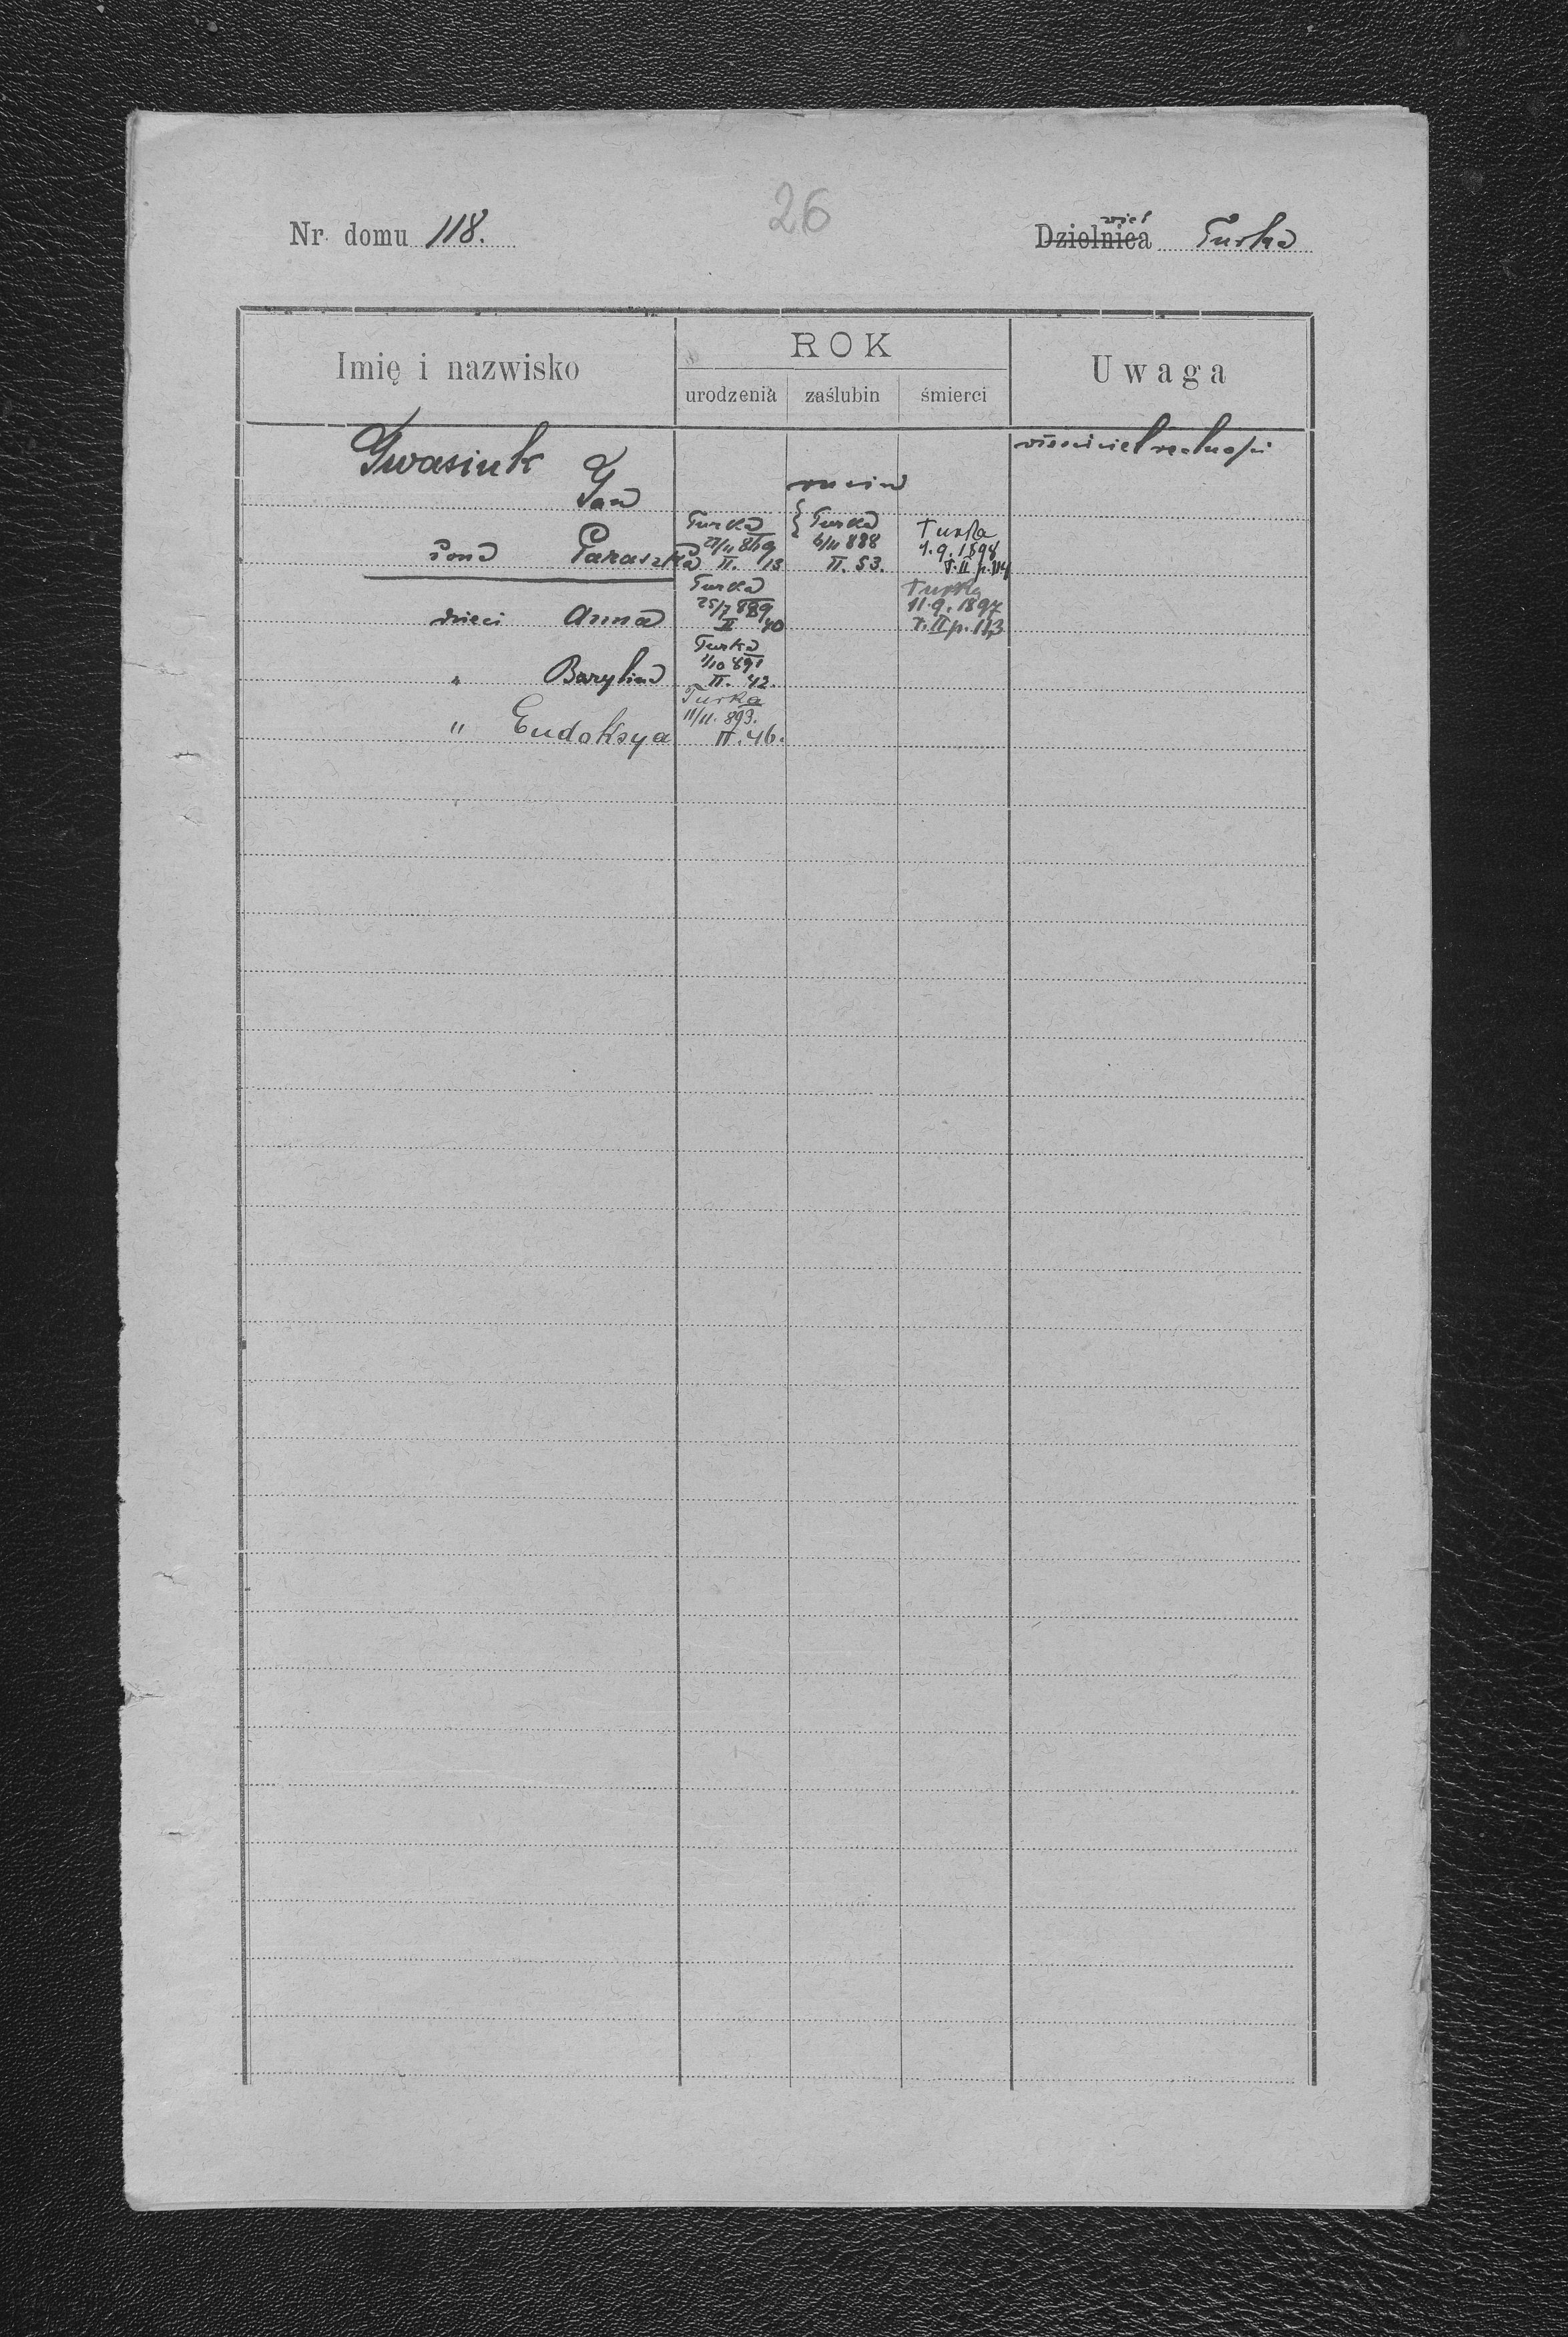 26
Nr. domu 118.
wieś
Dzielnica Turka
Imię i nazwisko
ROK
urodzenia zaślubin śmierci
Uwaga
Iwasiuk
Jan
żona Paraszka Turka 27/11 869 II. 13
Turka 6/11 888 II. 53.
Turka 1.9.1898 T. II p. 114
dzieci Anna Turka 25/7 889 II 40
Turka 11.9.1897 T. II p. 113
" Turka 1/10 891 II. 42.
" Eudoksya Turka 11/11. 893. II. 46.